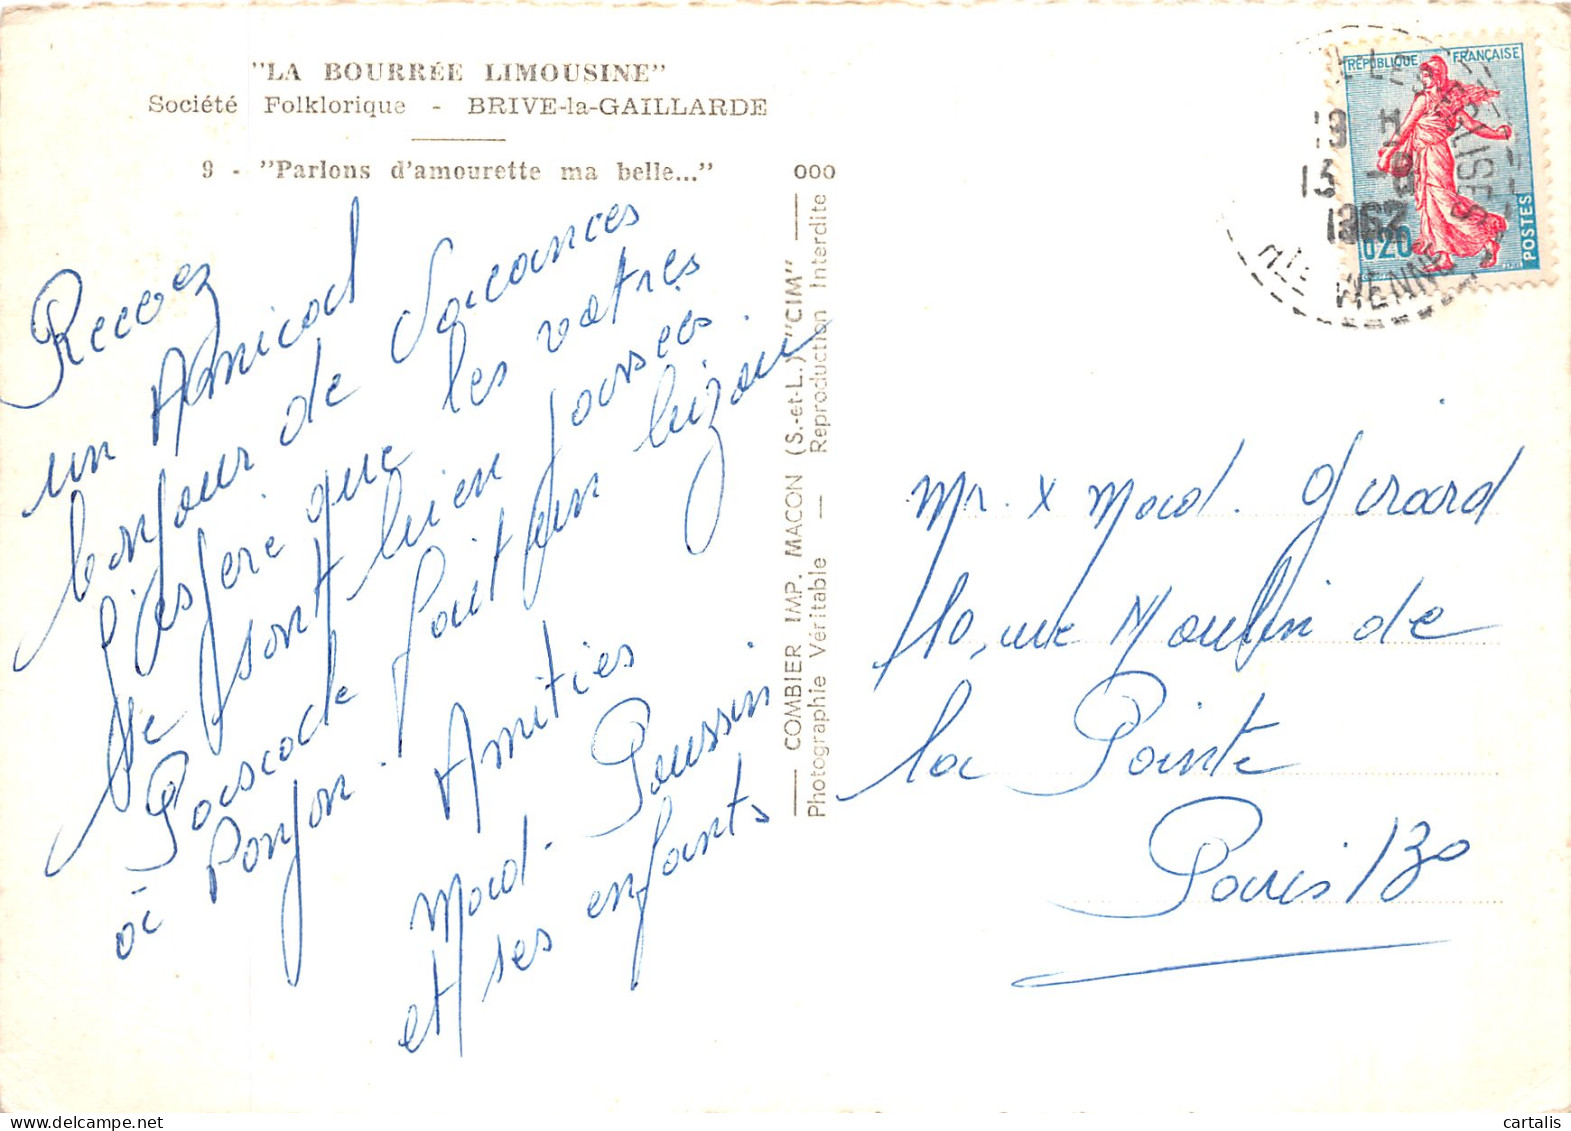 "LA BOURRÉE LIMOUSINE"
Société Folklorique - BRIVE-la-GAILLARDE
9 - "Parlons d'amourette ma belle..."
Recevez
un Amical
bonjour de Vacances
J'espere que les votres
se sont bien passées.
Pascale fait un bizou
à Ponpon.
Amitiés
Mad. Poussin
et ses enfants
COMBIER IMP. MACON (S.-et-L.) "CIM"
Photographie Véritable — Reproduction Interdite
000
RÉPUBLIQUE FRANÇAISE
0,20
POSTES
19 H
13 -8
1962
HTE VIENNE
Mr. x Mad. Girard
10, rue Moulin de
la Pointe
Paris 13e
cartalis